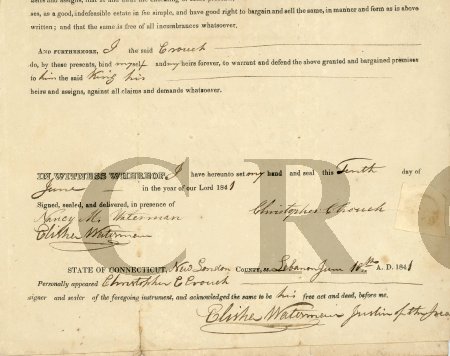 ses, as a good, indefeasible estate in fee simple, and have good right to bargain and sell the same, in manner and form as is above
written; and that the same is free of all incumbrances whatsoever.
AND FURTHERMORE, I the said Crouch
do, by these presents, bind myself and my heirs forever, to warrant and defend the above granted and bargained premises
to him the said King his
heirs and assigns, against all claims and demands whatsoever.
IN WITNESS WHEREOF, I have hereunto set my hand and seal this Tenth day of
June in the year of our Lord 1841
Signed, sealed, and delivered, in presence of
Nancy M. Waterman Christopher Crouch
Elisha Waterman
STATE OF CONNECTICUT, New London COUNTY, ss. Lebanon June 10th A. D. 1841
Personally appeared Christopher C Crouch
signer and sealer of the foregoing instrument, and acknowledged the same to be his free act and deed, before me.
Elisha Waterman Justice of the Peace
CRO